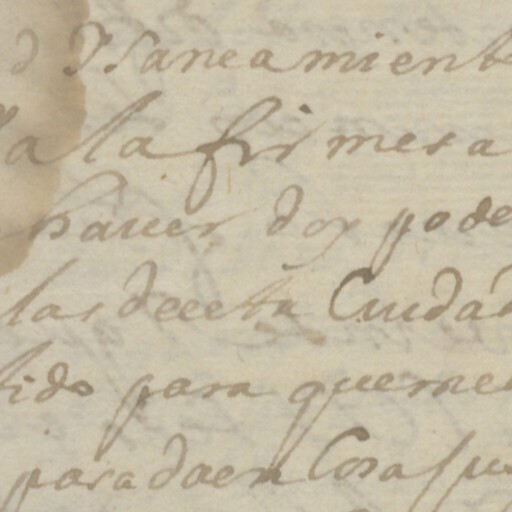 d Ysaneamiento
a la firmesa
hauer doy pode
las deesta Ciudad
tido para queme
parada en Cosa Jus